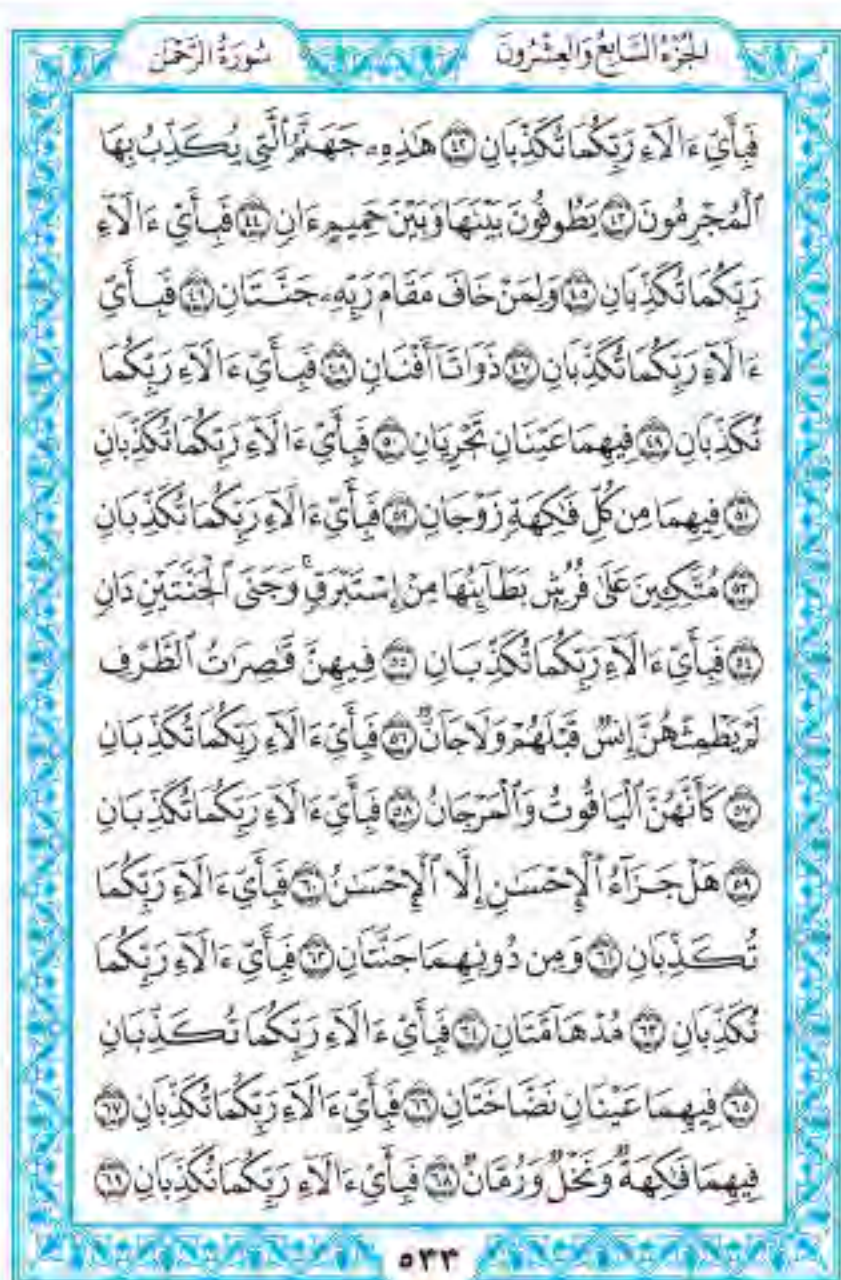 الجُزْءُ السَّابِعُ وَالعِشْرُونَ
سُورَةُ الرَّحْمٰن
فَبِأَيِّ ءَالَآءِ رَبِّكُمَا تُكَذِّبَانِ ٤٢ هَٰذِهِۦ جَهَنَّمُ ٱلَّتِي يُكَذِّبُ بِهَا
ٱلْمُجْرِمُونَ ٤٣ يَطُوفُونَ بَيْنَهَا وَبَيْنَ حَمِيمٍ ءَانٍ ٤٤ فَبِأَيِّ ءَالَآءِ
رَبِّكُمَا تُكَذِّبَانِ ٤٥ وَلِمَنْ خَافَ مَقَامَ رَبِّهِۦ جَنَّتَانِ ٤٦ فَبِأَيِّ
ءَالَآءِ رَبِّكُمَا تُكَذِّبَانِ ٤٧ ذَوَاتَآ أَفْنَانٍ ٤٨ فَبِأَيِّ ءَالَآءِ رَبِّكُمَا
تُكَذِّبَانِ ٤٩ فِيهِمَا عَيْنَانِ تَجْرِيَانِ ٥٠ فَبِأَيِّ ءَالَآءِ رَبِّكُمَا تُكَذِّبَانِ
٥١ فِيهِمَا مِن كُلِّ فَٰكِهَةٍ زَوْجَانِ ٥٢ فَبِأَيِّ ءَالَآءِ رَبِّكُمَا تُكَذِّبَانِ
٥٣ مُتَّكِـِٔينَ عَلَىٰ فُرُشٍۭ بَطَآئِنُهَا مِنْ إِسْتَبْرَقٍۚ وَجَنَى ٱلْجَنَّتَيْنِ دَانٍ
٥٤ فَبِأَيِّ ءَالَآءِ رَبِّكُمَا تُكَذِّبَانِ ٥٥ فِيهِنَّ قَٰصِرَٰتُ ٱلطَّرْفِ
لَمْ يَطْمِثْهُنَّ إِنسٌ قَبْلَهُمْ وَلَا جَآنٌّ ٥٦ فَبِأَيِّ ءَالَآءِ رَبِّكُمَا تُكَذِّبَانِ
٥٧ كَأَنَّهُنَّ ٱلْيَاقُوتُ وَٱلْمَرْجَانُ ٥٨ فَبِأَيِّ ءَالَآءِ رَبِّكُمَا تُكَذِّبَانِ
٥٩ هَلْ جَزَآءُ ٱلْإِحْسَٰنِ إِلَّا ٱلْإِحْسَٰنُ ٦٠ فَبِأَيِّ ءَالَآءِ رَبِّكُمَا
تُكَذِّبَانِ ٦١ وَمِن دُونِهِمَا جَنَّتَانِ ٦٢ فَبِأَيِّ ءَالَآءِ رَبِّكُمَا
تُكَذِّبَانِ ٦٣ مُدْهَآمَّتَانِ ٦٤ فَبِأَيِّ ءَالَآءِ رَبِّكُمَا تُكَذِّبَانِ
٦٥ فِيهِمَا عَيْنَانِ نَضَّاخَتَانِ ٦٦ فَبِأَيِّ ءَالَآءِ رَبِّكُمَا تُكَذِّبَانِ ٦٧
فِيهِمَا فَٰكِهَةٌ وَنَخْلٌ وَرُمَّانٌ ٦٨ فَبِأَيِّ ءَالَآءِ رَبِّكُمَا تُكَذِّبَانِ ٦٩
٥٣٣